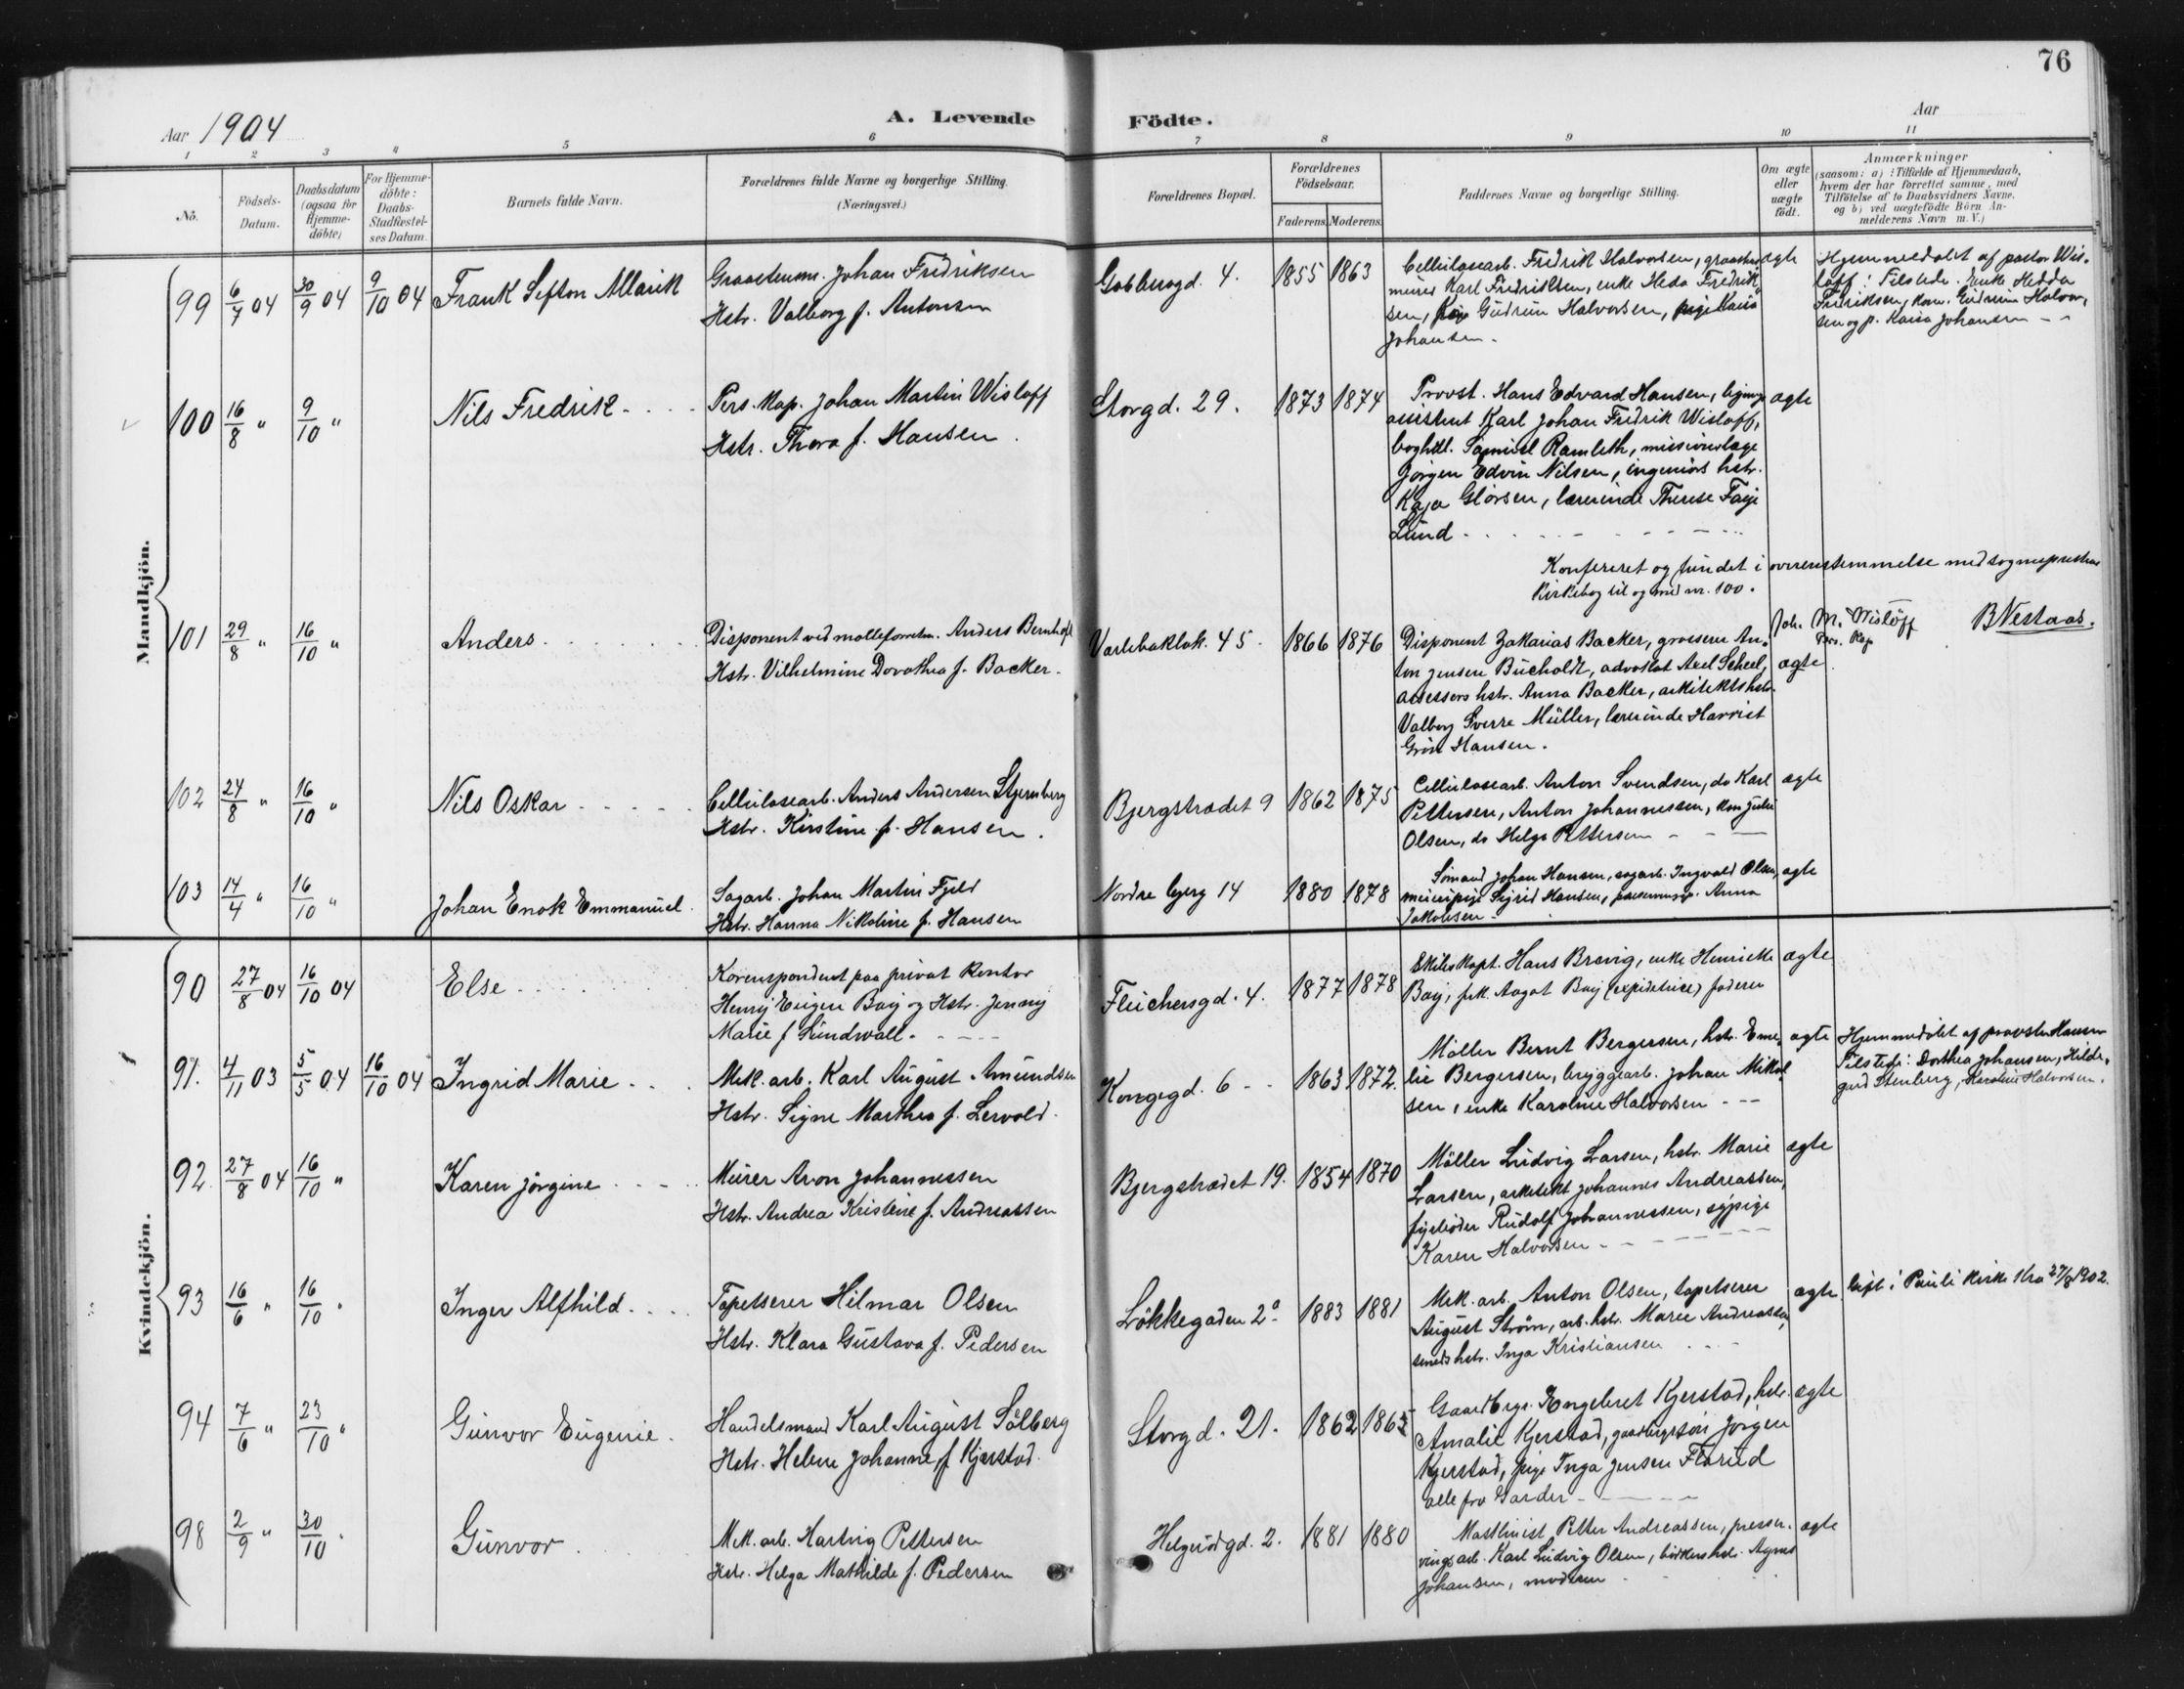 76
Aar 1904
A. Levende Födte.
Aar
1 2 3 4 5 6 7 8 9 10 11
No.
Födsels-Datum.
Daabsdatum (ogsaa för Hjemme-döbte)
For Hjemme-döbte: Daabs-Stadfæstel-ses Datum.
Barnets fulde Navn.
Forældrenes fulde Navne og borgerlige Stilling.
(Næringsvei.)
Forældrenes Bopæl.
Forældrenes Födselsaar.
Faderens Moderens
Faddernes Navne og borgerlige Stilling.
Om ægte eller uægte födt.
Anmærkninger
(saasom: a) i Tilfælde af Hjemmedaab,
hvem der har forrettet samme, med
Tilföielse af to Daabsvidners Navne.
og b) ved uægtefödte Börn An-
melderens Navn m. V.)
Mandkjön.
99 6/7 04 30/9 04 9/10 04 Frank Sefton Allarik
Graastensm. Johan Fredriksen
Hstr. Valborg f. Antonsen
4. 1855 1863
Cellulosearb. Fredrik Halvorsen,
murer Karl Fredriksen, enke Heda Fredrik
sen, Gudrun Halvorsen, pige Kaisa
Johansen.
ægte
Hjemmedöbt af pastor Wis-
löff: Tilstede: Enke Hedda
Fredriksen, kone Gudrun Halvor-
sen og p. Kaisa Johansen
100 16/8 " 9/10 " Nils Fredrik
Pers. Kap. Johan Martin Wislöff
Hstr. Thora f. Hansen.
Storgd. 29. 1873 1874
Provst. Hans Edvard Hansen,
assistent Karl Johan Fredrik Wislöff,
boghdl. Samuel Ramleth, missionslæge
Jörgen Edvin Nilsen, ingeniörs hstr.
Kaja Glörsen, lærerinde Therese Faye
Lund
ægte
Konfereret og fundet i overensstemmelse med sogneprestens
Kirkebog til og med nr. 100.
Joh. M. Wislöff
Pers. Kap
B Nestaas.
101 29/8 " 16/10 " Anders
Disponent ved mölleforretn. Anders Bernhoft
Hstr. Vilhelmine Dorothea f. Backer.
45 1866 1876
Disponent Zakarias Backer, grosserer An-
ton Jensen Bucholdt, advokat Axel Scheel,
assessors hstr. Anna Backer, arkitekts hstr.
Valborg Sverre Müller, lærerinde Harriet
Grön Hansen.
ægte
102 24/8 " 16/10 " Nils Oskar
Cellulosearb. Anders Andersen Stjernberg
Hstr. Kirstine f. Hansen.
Bjergstrædet 9 1862 1875
Cellulosearb. Anton Svendsen, do Karl
Pettersen, Anton Johannessen, kone Julie
Olsen, do Helga Pettersen
ægte
103 14/4 " 16/10 " Johan Enok Emmanuel
Sagarb. Johan Martin Fjeld
Hstr. Hanna Nikoline f. Hansen
Nordre bjerg 14 1880 1878
Sömand Johan Hansen, sagarb. Ingvald Olsen,
Sigrid Hansen, Anna
Jakobsen
ægte
Kvindekjön.
90 27/8 04 16/10 04 Else
Korrespondent paa privat Kontor
Henry Eugen Bay og Hstr. Jenny
Marie f Sundwall.
4. 1877 1878
Skibskapt. Hans Brevig, enke Henriette
Bay, frk. Aagot Bay (expeditrice) faderen
ægte
91. 4/11 03 5/5 04 16/10 04 Ingrid Marie
Mek. arb. Karl August Amundsen
Hstr. Signe Marthea f. Lervold.
Kongegd. 6 1863 1872.
Möller Bernt Bergersen, hstr. Eme-
lie Bergersen, bryggearb. Johan Mikal
sen, enke Karoline Halvorsen
ægte
Hjemmedöbt af provsten Hansen
Tilstede: Dorthea Johansen, Hilde-
gard Stenberg, Karoline Halvorsen.
92. 27/8 04 16/10 " Karen Jörgine
Murer Aron Johannessen
Hstr. Andrea Kristine f. Andreassen
Bjergstrædet 19. 1854 1870
Möller Ludvig Larsen, hstr. Marie
Larsen, arkitekt Johannes Andreassen,
fyrböder Rudolf Johannessen, sypige
Karen Halvorsen
ægte
93 16/6 " 16/10 " Inger Alfhild
Tapetserer Hilmar Olsen
Hstr. Klara Gustava f. Pedersen
Lökkegaden 2a 1883 1881
Mek. arb. Anton Olsen, tapetserer
August Ström, arb. hstr. Maree Andreassen,
smeds hstr. Inga Kristiansen
ægte
i Pauli Kirke Kra 27/8 1902.
94 7/6 " 23/10 " Gunvor Eugenie.
Handelsmand Karl August Sölberg
Hstr. Helene Johanne f Kjerstad
Storgd. 21. 1862 1865
Gaardbrgr. Engebret Kjerstad, hstr.
Amalie Kjerstad, gaardbrgrsön Jörgen
Kjerstad, pige Inga Jensen Florud
alle fra Garder
ægte
98 2/9 " 30/10 " Gunvor
Mek. arb. Hartvig Pettersen
Hstr. Helga Mathilde f. Pedersen
Helgerödgd. 2. 1881 1880
Maskinist Petter Andreassen, presser-
vings arb. Karl Ludvig Olsen, hstr. Agnes
Johansen, moderen
ægte